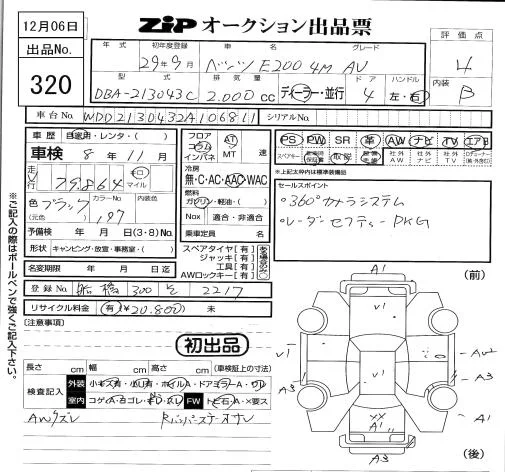 12月06日
ZIP オークション出品票
出品No.
320
評価点
4
内装
B
年式 初年度登録 車名 グレード
29年9月 ベンツ E200 4M AV
型式 排気量 ドア ハンドル
DBA-213043C 2.000cc ディーラー・並行 4 左・右
車台No. WDD2130432A106811 シリアルNo.
車歴 自家用・レンタ・( )
車検 8年 11月
走行 79,864 キロ マイル
色 ブラック (元色) カラーNo. 197
予備検 年 月 日(3・8)No.
形状 キャンピング・放宣・事務室( )
名変期限 年 月 日迄
登録No. 船橋 300 そ 2217
リサイクル料金 有(¥20.800) 未
フロア コラム インパネ AT MT 速
冷房
無・C・AC・AAC・WAC
燃料
ガソリン・軽油・( )
Nox 適合・非適合
乗車定員 名
スペアタイヤ[有]
ジャッキ[有]
工具[有]
AWロックキー[有]
PS PW SR 革 AW ナビ TV エアB
スペアキー 取説 社外AW 社外ナビ 社外TV
※上記太枠内は標準装備品
セールスポイント
○360°カメラシステム
○レーダーセフティーPKG
[注意事項]
初出品
長さ cm 幅 cm 高さ cm (車検証上の寸法)
検査記入 外装 小キズ有・小凹有・ホイルA・ドアミラーA・ワレ
室内 コゲA・ヨゴレ・キレ・スレ FW トビ石・A・X要ス
AWズレ
Rバンパーステーオサレ
※ご記入の際はボールペンで強くご記入下さい。
(前)
A1
V1
V1
V1
AW2
A3
A3
A1
XX
A1
A3
(後)